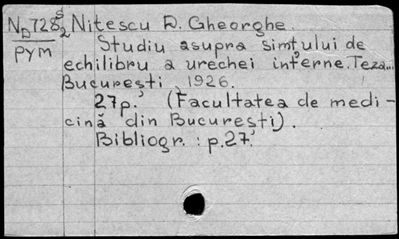 N_D 728/2 Nițescu D. Gheorghe.
рум Studiu asupra simțului de
echilibru a urechei interne. Teza...
București, 1926.
27p. (Facultatea de medi-
cină din București).
Bibliogr.: p.27.